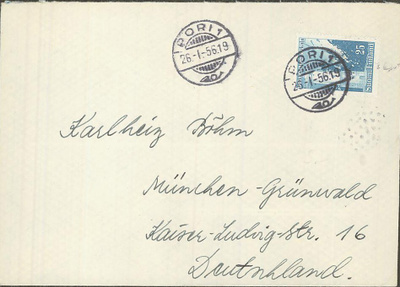 PORI 1
26.-I-56.19
40
PORI 1
26.-I-56.19
40
25
Karlheiz Böhm
München-Grünwald
Kaiser-Ludwig-str. 16
Deutnhland.